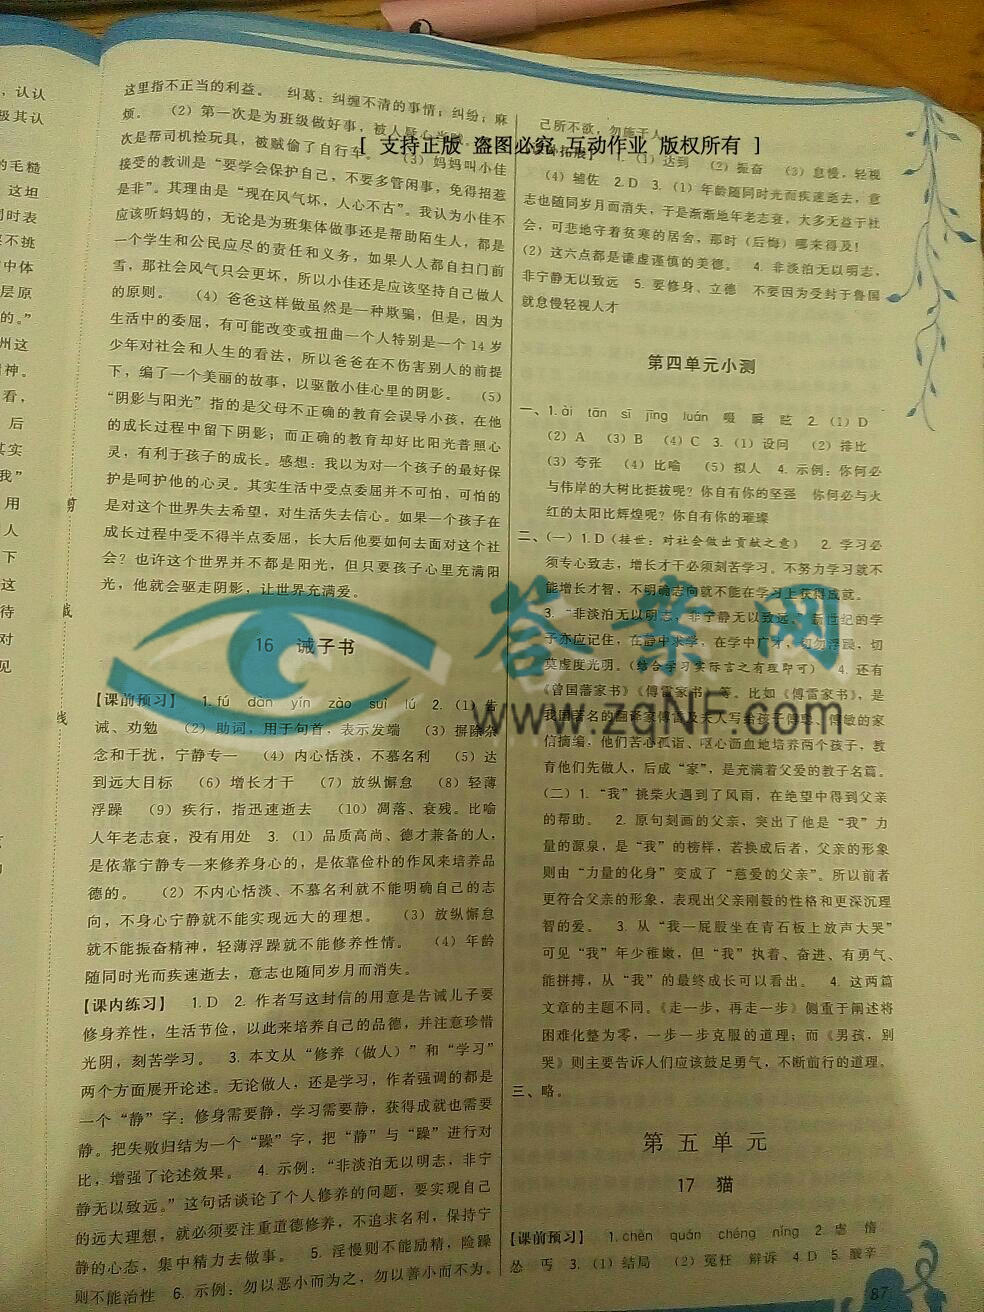 ，认认
及其认
的毛糙
，这坦
同时表
终不挑
中体
层原
的。”
州这
精神。
看，
后
其实
我”
用
人
下
这
待
对
见
剪
裁
线
这里指不正当的利益。 纠葛：纠缠不清的事情；纠纷；麻
烦。 （2）第一次是为班级做好事，被人疑心当贼
次是帮司机捡玩具，被贼偷了自行车。 （3）妈妈叫小佳
接受的教训是“要学会保护自己，不要多管闲事，免得招惹
是非”。其理由是“现在风气坏，人心不古”。我认为小佳不
应该听妈妈的，无论是为班集体做事还是帮助陌生人，都是
一个学生和公民应尽的责任和义务，如果人人都自扫门前
雪，那社会风气只会更坏，所以小佳还是应该坚持自己做人
的原则。 （4）爸爸这样做虽然是一种欺骗，但是，因为
生活中的委屈，有可能改变或扭曲一个人特别是一个14岁
少年对社会和人生的看法，所以爸爸在不伤害别人的前提
下，编了一个美丽的故事，以驱散小佳心里的阴影。 （5）
“阴影与阳光”指的是父母不正确的教育会误导小孩，在他
的成长过程中留下阴影；而正确的教育却好比阳光普照心
灵，有利于孩子的成长。感想：我以为对一个孩子的最好保
护是呵护他的心灵。其实生活中受点委屈并不可怕，可怕的
是对这个世界失去希望，对生活失去信心。如果一个孩子在
成长过程中受不得半点委屈，长大后他要如何去面对这个社
会？也许这个世界并不都是阳光，但只要孩子心里充满阳
光，他就会驱走阴影，让世界充满爱。
16 诫子书
【课前预习】 1. fú dàn yín zào suì lú 2.（1）告
诫、劝勉 （2）助词，用于句首，表示发端 （3）摒除杂
念和干扰，宁静专一 （4）内心恬淡，不慕名利 （5）达
到远大目标 （6）增长才干 （7）放纵懈怠 （8）轻薄
浮躁 （9）疾行，指迅速逝去 （10）凋落、衰残。比喻
人年老志衰，没有用处 3.（1）品质高尚、德才兼备的人，
是依靠宁静专一来修养身心的，是依靠俭朴的作风来培养品
德的。 （2）不内心恬淡、不慕名利就不能明确自己的志
向，不身心宁静就不能实现远大的理想。 （3）放纵懈怠
就不能振奋精神，轻薄浮躁就不能修养性情。 （4）年龄
随同时光而疾速逝去，意志也随同岁月而消失。
【课内练习】 1. D 2. 作者写这封信的用意是告诫儿子要
修身养性，生活节俭，以此来培养自己的品德，并注意珍惜
光阴，刻苦学习。 3. 本文从“修养（做人）”和“学习”
两个方面展开论述。无论做人，还是学习，作者强调的都是
一个“静”字：修身需要静，学习需要静，获得成就也需要
静。把失败归结为一个“躁”字，把“静”与“躁”进行对
比，增强了论述效果。 4. 示例：“非淡泊无以明志，非宁
静无以致远。”这句话谈论了个人修养的问题，要实现自己
的远大理想，就必须要注重道德修养，不追求名利，保持宁
静的心态，集中精力去做事。 5. 淫慢则不能励精，险躁
则不能治性 6. 示例：勿以恶小而为之，勿以善小而不为。
己所不欲，勿施于人
[ 支持正版 盗图必究 互动作业 版权所有 ]
【课外拓展】 1.（1）达到 （2）振奋 （3）怠慢，轻视
（4）辅佐 2. D 3.（1）年龄随同时光而疾速逝去，意
志也随同岁月而消失，于是渐渐地年老志衰，大多无益于社
会，可悲地守着贫寒的居舍，那时（后悔）哪来得及！
（2）这六点都是谦虚谨慎的美德。 4. 非淡泊无以明志，
非宁静无以致远 5. 要修身、立德 不要因为受封于鲁国
就怠慢轻视人才
第四单元小测
一、1. ài tān sì jīng luán 啜 瞬 眩 2.（1）D
（2）A （3）B （4）C 3.（1）设问 （2）排比
（3）夸张 （4）比喻 （5）拟人 4. 示例：你何必
与伟岸的大树比挺拔呢？你自有你的坚强 你何必与火
红的太阳比辉煌呢？你自有你的璀璨
二、（一）1. D（接世：对社会做出贡献之意） 2. 学习必
须专心致志，增长才干必须刻苦学习。不努力学习就不
能增长才智，不明确志向就不能在学习上获得成就。
3. “非淡泊无以明志，非宁静无以致远。”新世纪的学
子亦应记住，在静中求学，在学中广才，切勿浮躁，切
莫虚度光明。（结合学习实际言之有理即可） 4. 还有
《曾国藩家书》《傅雷家书》等。比如《傅雷家书》，是
我国著名的翻译家傅雷及夫人写给孩子傅聪、傅敏的家
信摘编，他们苦心孤诣、呕心沥血地培养两个孩子，教
育他们先做人，后成“家”，是充满着父爱的教子名篇。
（二）1. “我”挑柴火遇到了风雨，在绝望中得到父亲
的帮助。 2. 原句刻画的父亲，突出了他是“我”力
量的源泉，是“我”的榜样，若换成后者，父亲的形象
则由“力量的化身”变成了“慈爱的父亲”。所以前者
更符合父亲的形象，表现出父亲刚毅的性格和更深沉理
智的爱。 3. 从“我一屁股坐在青石板上放声大哭”
可见“我”年少稚嫩，但“我”执着、奋进、有勇气、
能拼搏，从“我”的最终成长可以看出。 4. 这两篇
文章的主题不同。《走一步，再走一步》侧重于阐述将
困难化整为零，一步一步克服的道理；而《男孩，别
哭》则主要告诉人们应该鼓足勇气，不断前行的道理。
三、略。
第五单元
17 猫
【课前预习】 1. chèn quán chéng níng 2. 虐 惰
怂 丐 3.（1）结局 （2）冤枉 辩诉 4. D 5. 酸辛
87
答案网
www.zqNF.com